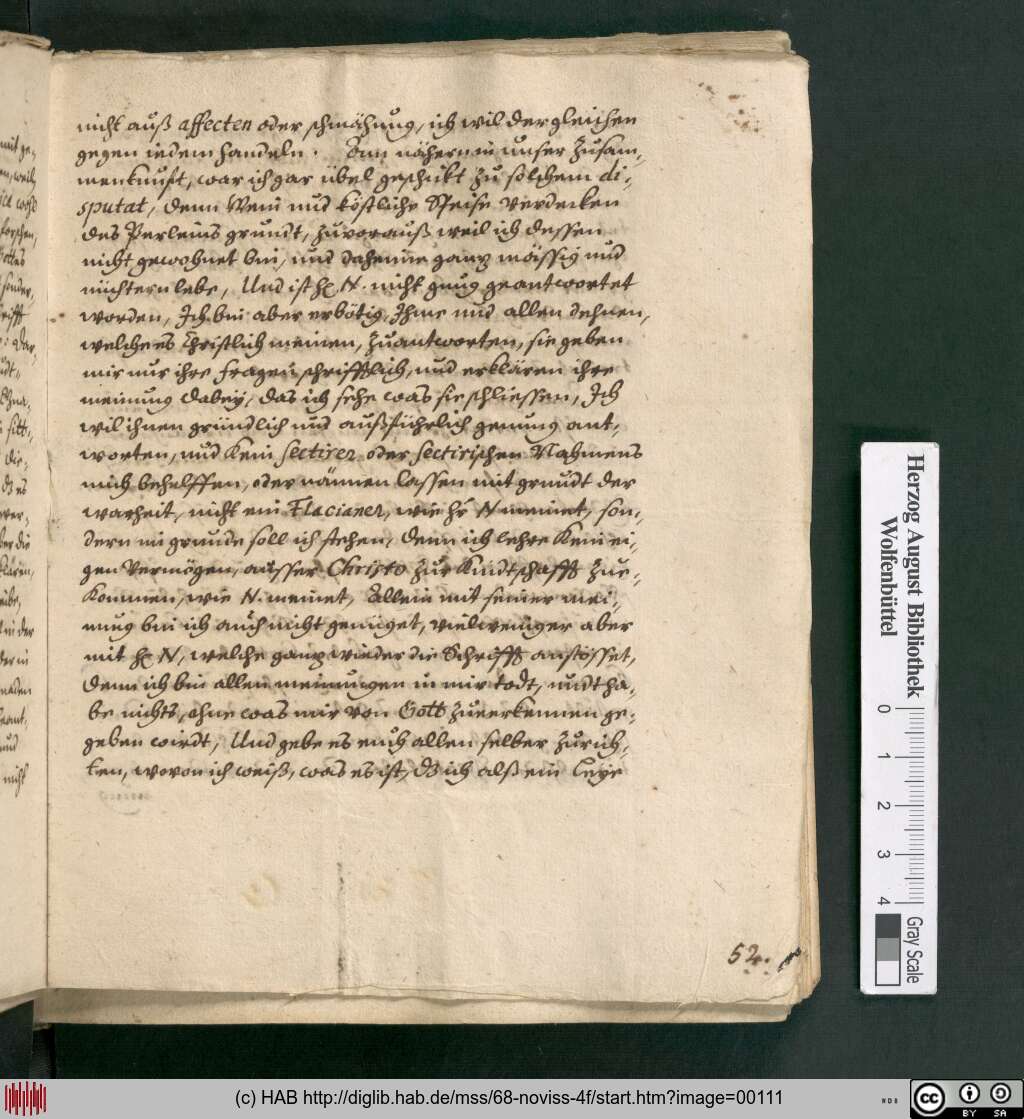 nicht auß affecten oder schmähung, ich wil dergleichen
gegen iedem handeln. Inn nähern in unser Zusam-
menkunfft, war ich gar übel geschikt zu solchem di-
sputat, denn Wein und köstliche Speise verdecken
des Perleins grundt, zuvorauß weil ich dessen
nicht gewohnet bin, und daheime ganz mässig und
nüchtern lebe, Und ist hr N. nicht gnug geantwortet
worden, Ich bin aber erbötig, Ihme und allen dehnen,
welche es Christlich meinen, zuantworten, sie geben
mir nur ihre fragen schrifftlich, und erklären ihre
meinung dabey, das ich sehe was sie schliessen, Ich
wil ihnen gründlich und außführlich genung ant-
worten, und kein sectirer oder sectirischen Nahmens
mich behelffen, oder nännen lassen mit grundt der
warheit, nicht ein Flacianer, wie hr N meinet, son-
dern im grunde soll ich stehen, denn ich lehre kein ei-
gen vermögen, ausser Christo zur Kindtschafft zue-
kommen, wie N. meinet, Allein mit seiner mei-
nung bin ich auch nicht genüget, vielweniger aber
mit hr N, welche ganz wieder die Schrifft anstösset,
denn ich bin allen meinungen in mir todt, undt ha-
be nichts, ohne was mir von Gott zuerkennen ge-
geben wirdt, Und gebe es euch allen selber zurich-
ten, wovon ich weiß, was es ist, dz ich alß ein Leye
52.
mit ge-
Herzog August Bibliothek
Wolfenbüttel
0 1 2 3 4
Gray Scale
(c) HAB http://diglib.hab.de/mss/68-noviss-4f/start.htm?image=00111
cc BY SA